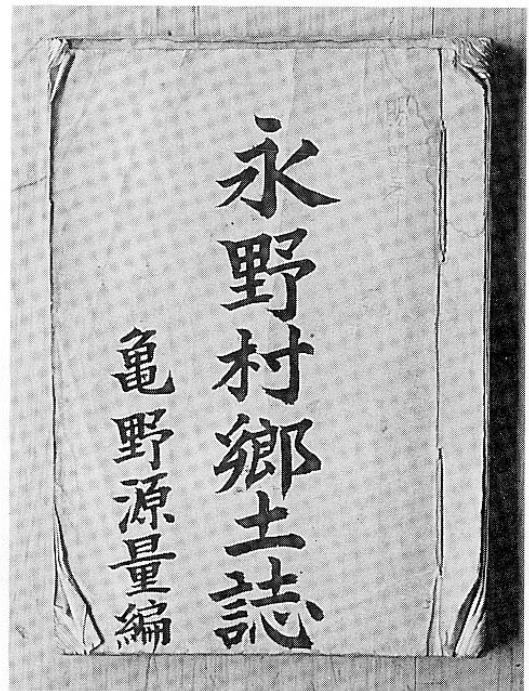 永野村郷土誌
亀野源量編